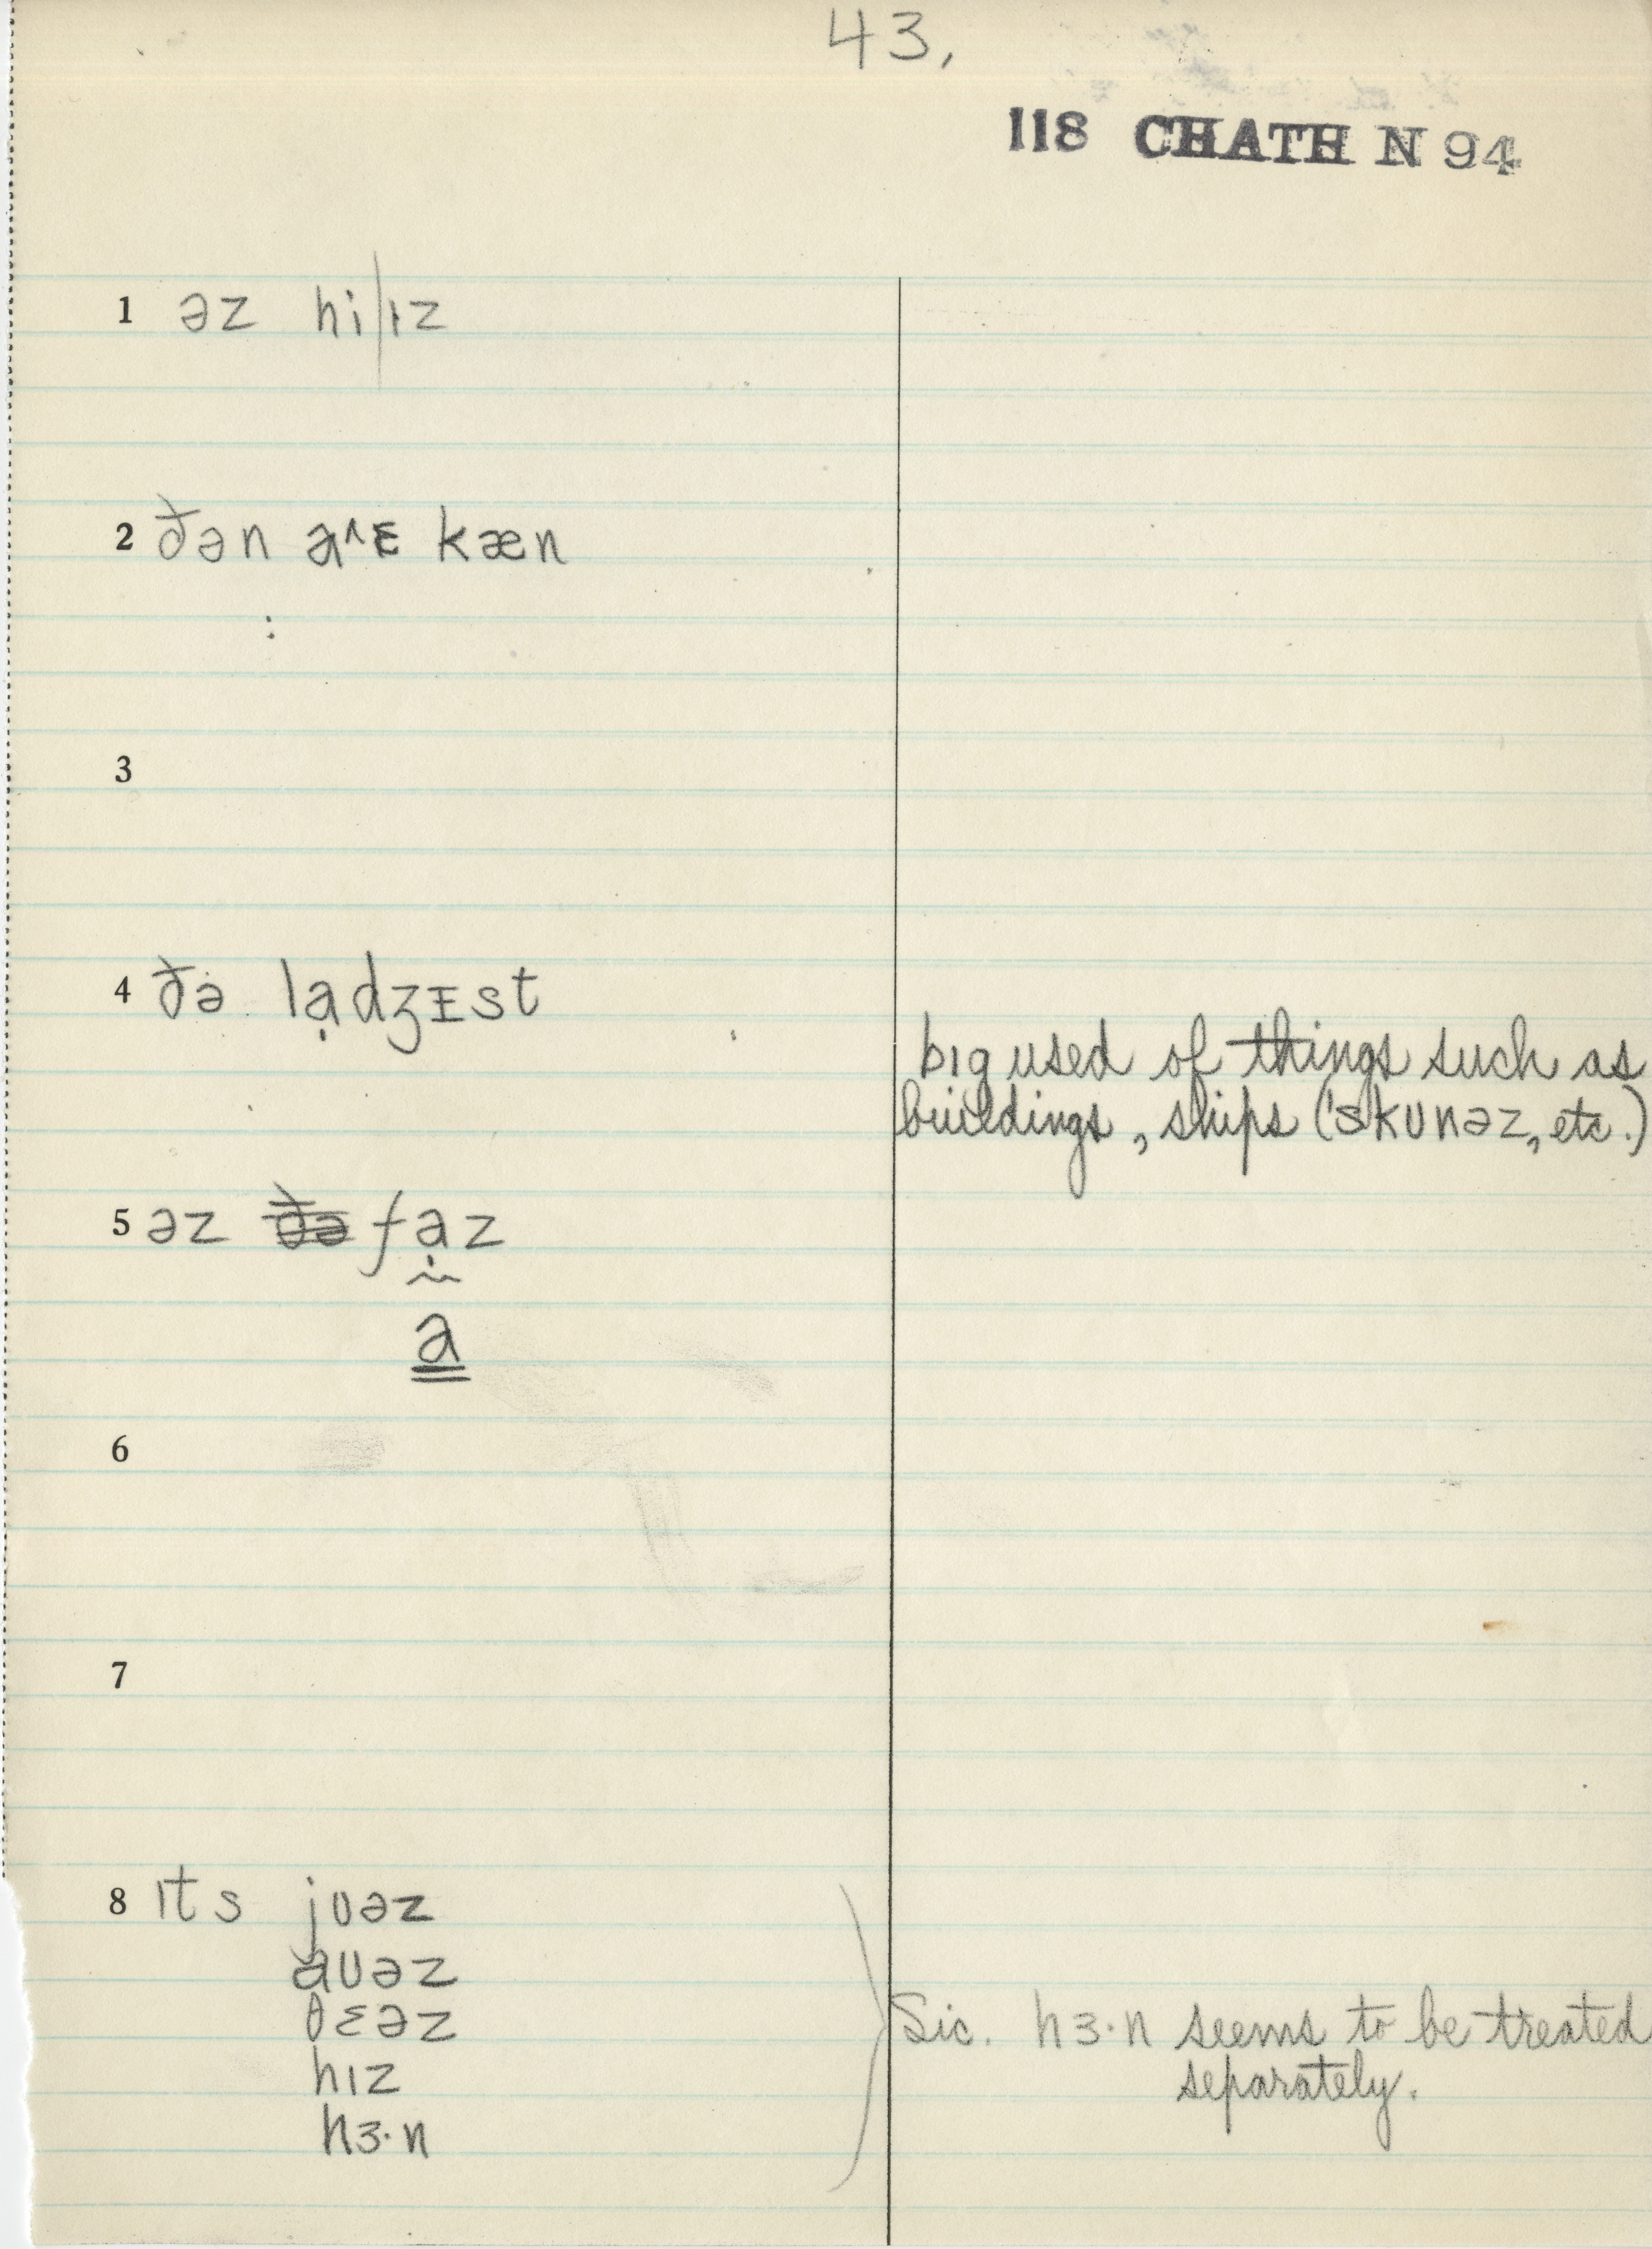 43,
118 CHATH N 94
1 əz hi|ɪz
2 ðən aˆɛ kæn
3
4 ðə lạdʒɪst
bɪg used of things such as
buildings, ships (ˈskunəz, etc.)
5 əz ðə fạz
a
6
7
8 ɪts jʊəz
aʊəz
ðɛəz
hɪz
hɜ·n
Sic. hɜ·n seems to be treated
separately.